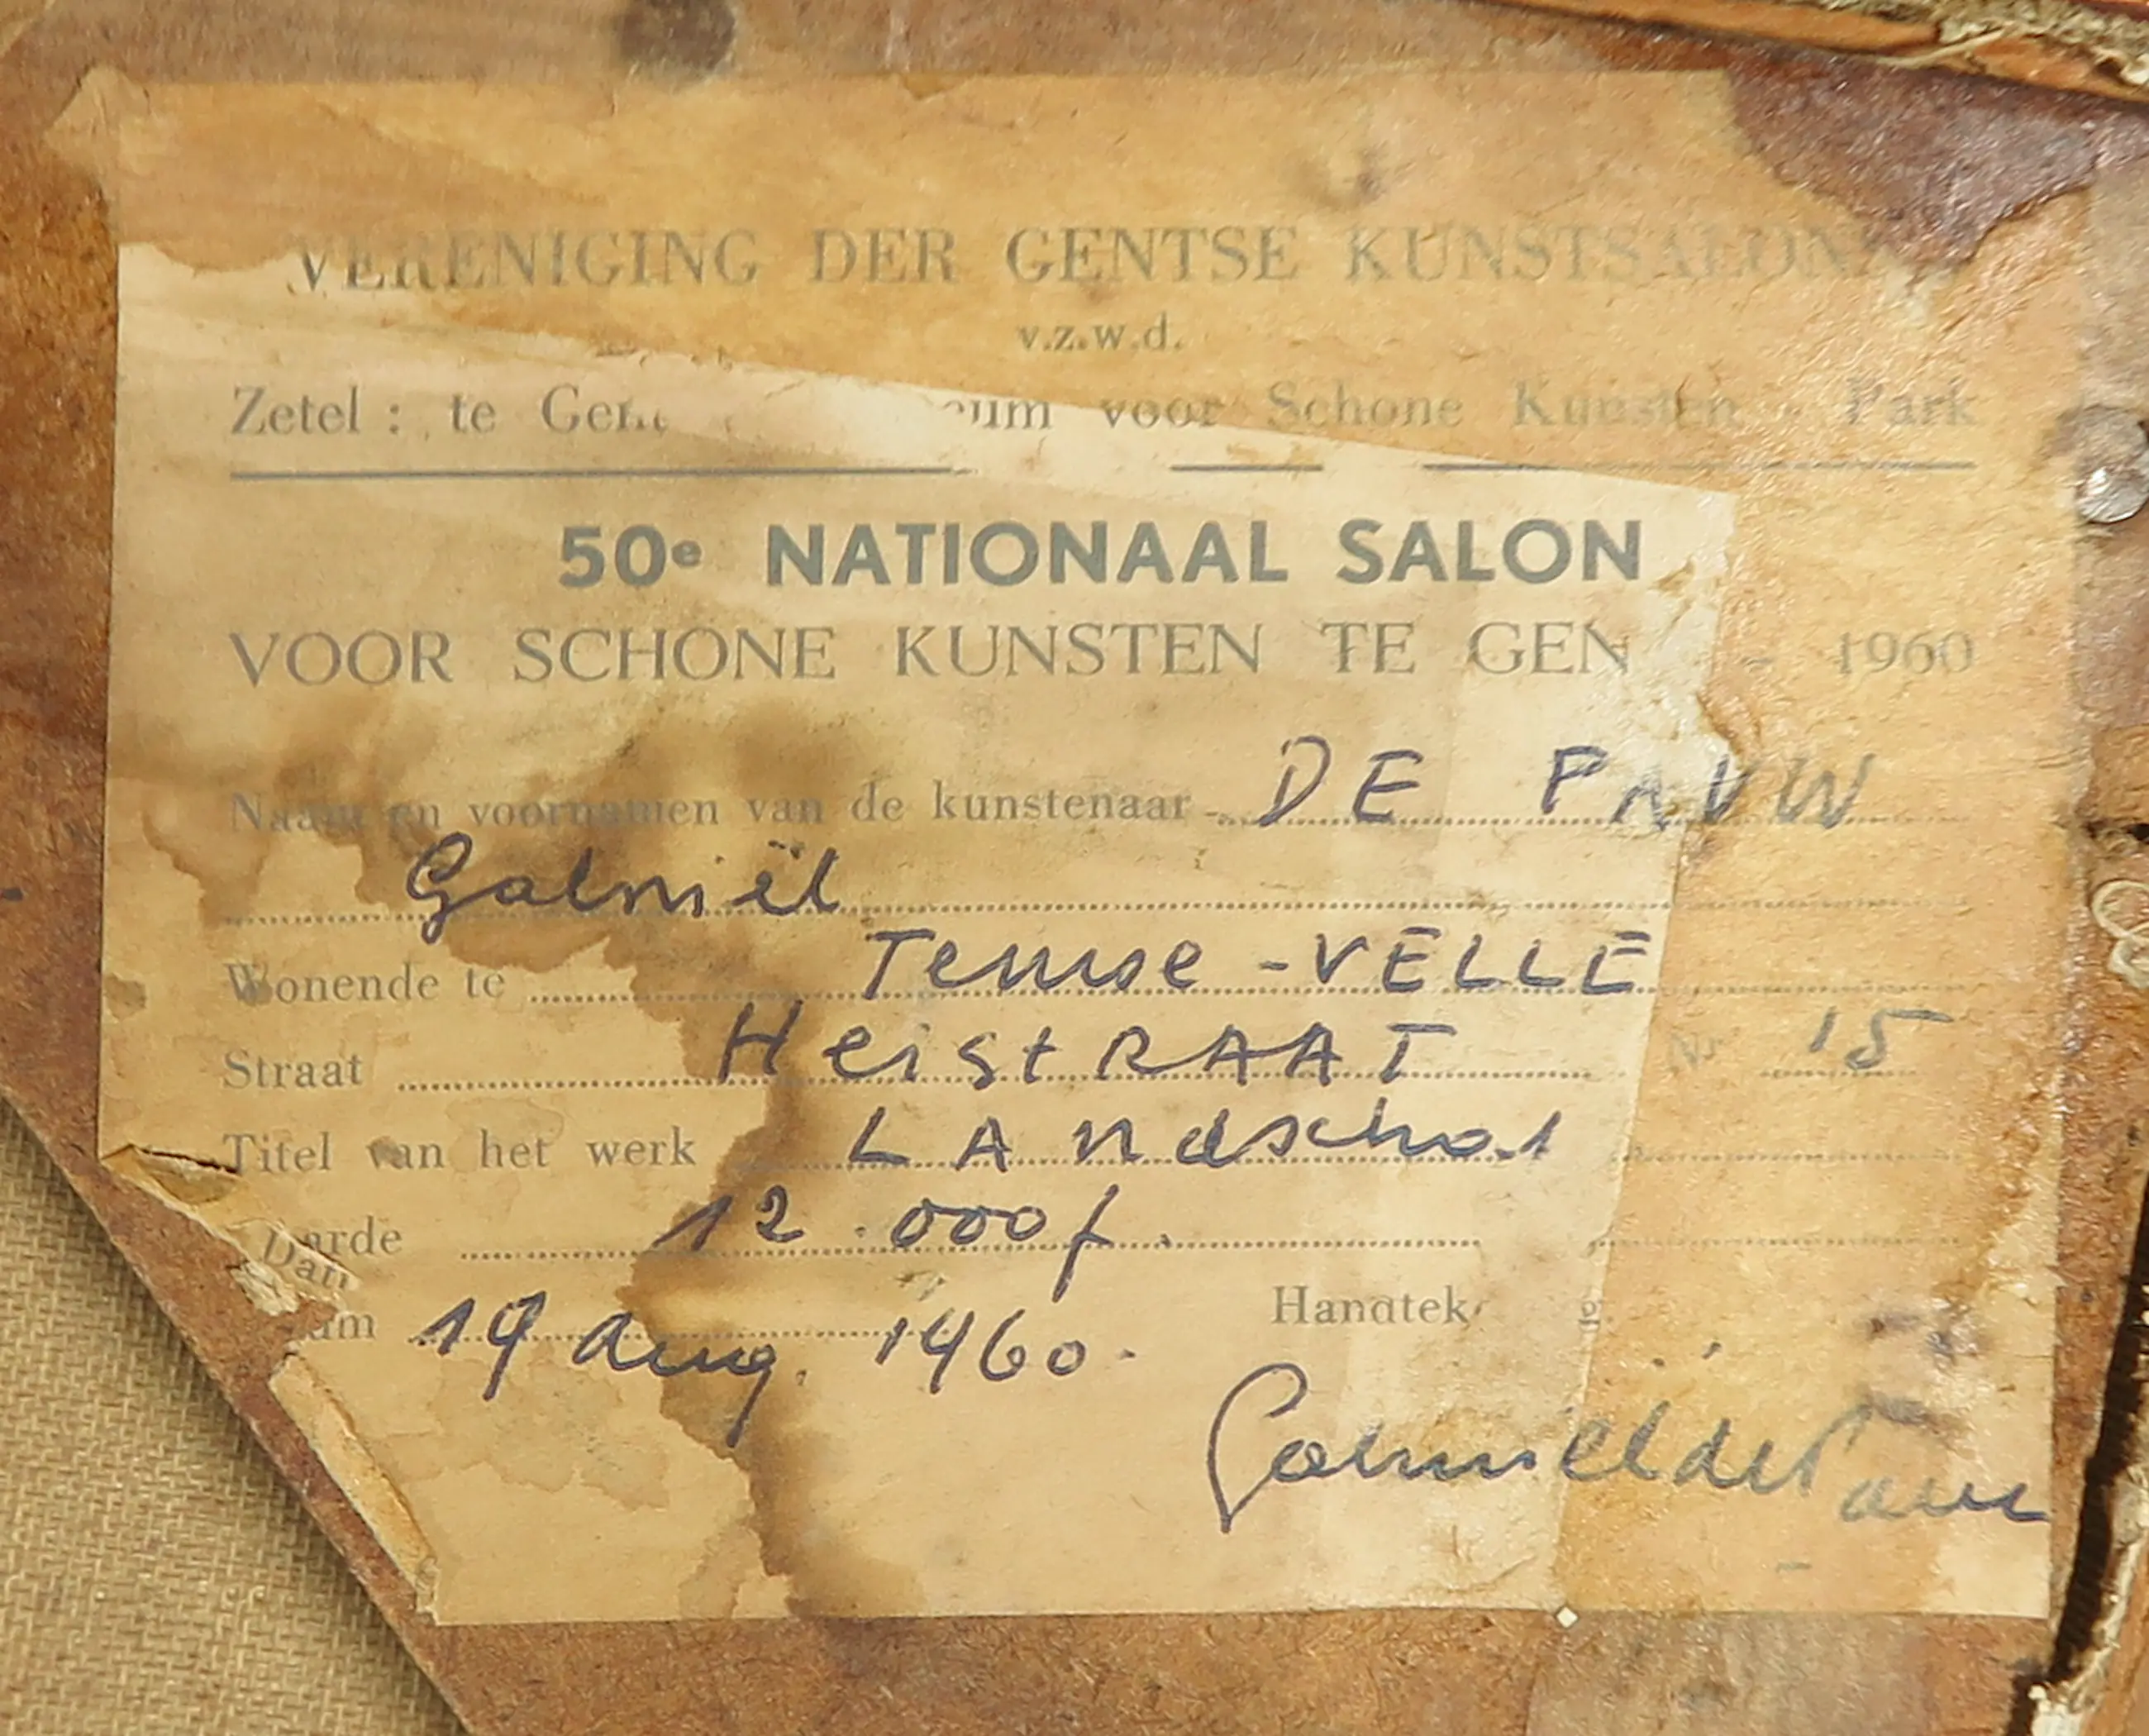 VERENIGING DER GENTSE KUNSTSALONS
v.z.w.d.
Zetel : te Gent voor Schone Kunsten - Park
50e NATIONAAL SALON
VOOR SCHONE KUNSTEN TE GEN - 1960
Naam en voornamen van de kunstenaar - DE PAUW
Gabriël
Wonende te Temse - VELLE
Straat HeistRAAT Nr 15
Titel van het werk LANdschap
arde 12.000 f.
Dat
um 19 Aug. 1960. Handtek g.
Gabriël de Pauw